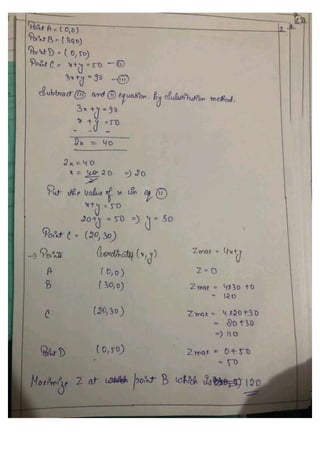 Point A = (0,0)
Point B = (30,0)
Point D = (0,50)
Point C = x+y = 50 — (ii)
3x+y = 90 — (iii)
Subtract (iii) and (ii) equation. By Substitution method.
3x + y = 90
x + y = 50
- - -
2x = 40
2x = 40
x = 40/2 20 => 20
Put the value of x in eq (ii)
x+y = 50
20+y = 50 => y = 50
Point C = (20,30)
→ Points Coordinates (x,y) Zmax = 4x+y
A (0,0) Z = 0
B (30,0) Zmax = 4x30 + 0
= 120
C (20,30) Zmax = 4x20+30
= 80+30
=> 110
Point D (0,50) Zmax = 0+50
= 50
Maximize Z at point B which is 120